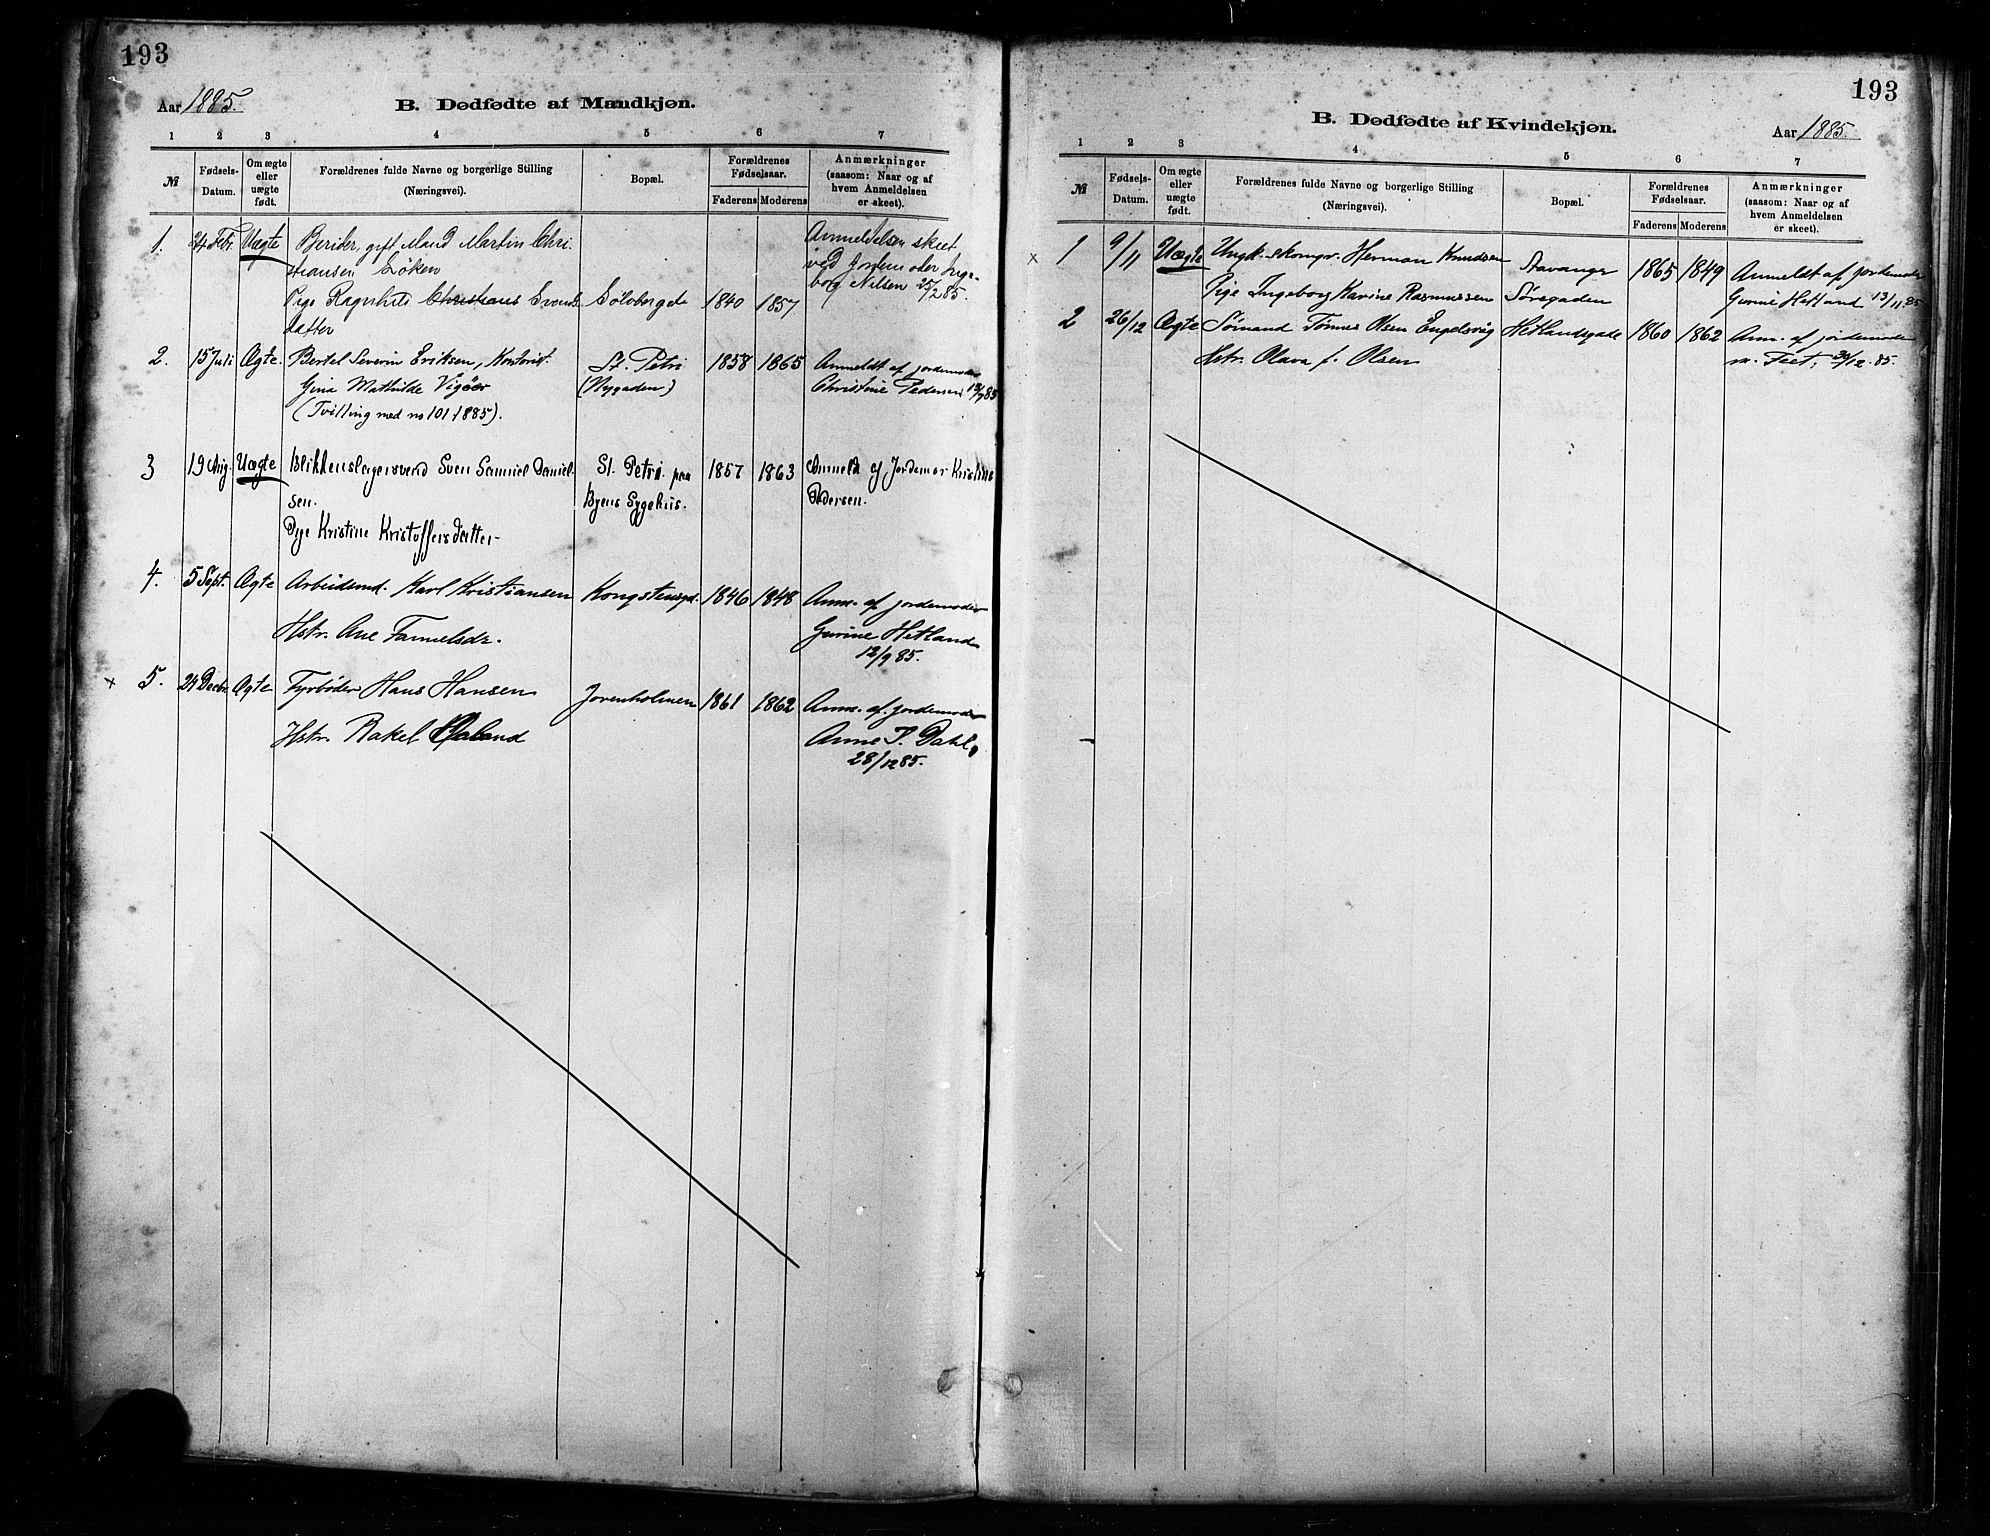 193
Aar 1885.
B. Dødfødte af Mandkjøn.
1 2 3 4 5 6 7
№
Fødsels-
Datum.
Om ægte
eller
uægte
født.
Forældrenes fulde Navne og borgerlige Stilling
(Næringsvei).
Bopæl.
Forældrenes
Fødselsaar.
Faderens Moderens
Anmærkninger
(saasom: Naar og af
hvem Anmeldelsen
er skeet).
1. 24 Febr. Uægte Berider, gift Mand Martin Chri-
stiansen Løken
Pige Ragnhild Christians Svends-
datter
Sølvberget 1840 1857
Anmeldelsen skeet
ved Jordemoder Inge-
borg Nilsen 25/2 85.
2. 15 Juli Ægte Bertel Severin Eriksen, Kontorist.
Gina Mathilde Vigøer
(Tvilling med no 101 1885).
St. Petri
(Nygaden)
1858 1865
Anmeldt af jordemoder
Christine Pedersen 18/7 85
3 19 Aug. Uægte Blikkenslagersvend Sven Samuel Daniel-
sen.
Pige Kristine Kristoffersdatter
St. Petri paa
Byens Sygehus.
1857 1863
Anmeldt af Jordemor Kristine
Pedersen.
4. 5 Sept. Ægte Arbeidsmd. Karl Kristiansen
Hstr. Ane
Kongstensgd. 1846 1848
Anm. af jordemoder
Gurine Hetland
12/9 85.
× 5. 24 Decbr. Ægte Fyrbøder Hans Hansen
Hstr. Rakel Aaland
Jorenholmen 1861 1862
Anm. af jordemoder
Anne P. Dahl,
28/12 85.
193
B. Dødfødte af Kvindekjøn.
Aar 1885.
1 2 3 4 5 6 7
№
Fødsels-
Datum.
Om ægte
eller
uægte
født.
Forældrenes fulde Navne og borgerlige Stilling
(Næringsvei).
Bopæl.
Forældrenes
Fødselsaar.
Faderens Moderens
Anmærkninger
(saasom: Naar og af
hvem Anmeldelsen
er skeet).
× 1 9/11 Uægte Ungk. Herman Knudsen
Pige Ingeborg Karine Rasmussen
Stavanger
Søregaden
1865 1849
Anmeldt af jordemoder
Gurine Hetland 13/11 85
2 26/12 Ægte Sømand Tønnes Olsen Engelsvåg
Hstr. Olava f. Olsen
Hetlandsgade 1860 1862
Anm. af jordemoder
m. Feet, 30/12 85.